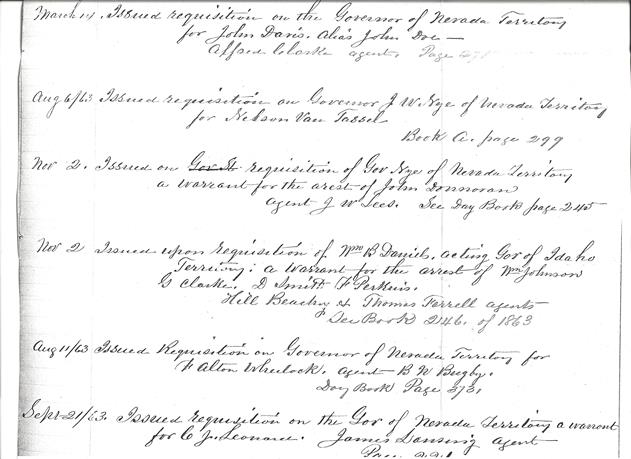 March 14. Issued requisition on the Governor of Nevada Territory
for John Davis. Alias John Doe —
Alfred Clarke agent. Page
Aug 6/63 Issued requisition on Governor J W. Nye of Nevada Territory
for Nelson Van Tassel
Book A. page 299
Nov 2. Issued on Gov St requisition of Gov Nye of Nevada Territory
a warrant for the arest of John Donnovan
Agent J W Lees. See Day Book page 245
Nov 2 Issued upon requisition of Wm B Daniels, acting Gov of Idaho
Territory: a warrant for the arrest of Wm Johnson
G Clarke. D Smith F Perkins.
Hill Beachy & Thomas Farrell agents
See Book 246. of 1863
Aug 11/63 Issued Requisition on Governor of Nevada Territory for
F Alton Wheelock. Agent B N Bugby.
Day Book Page 373.
Sept 21/63. Issued requisition on the Gov of Nevada Territory a warrant
for C J. Leonard. James Lansing agent
Page